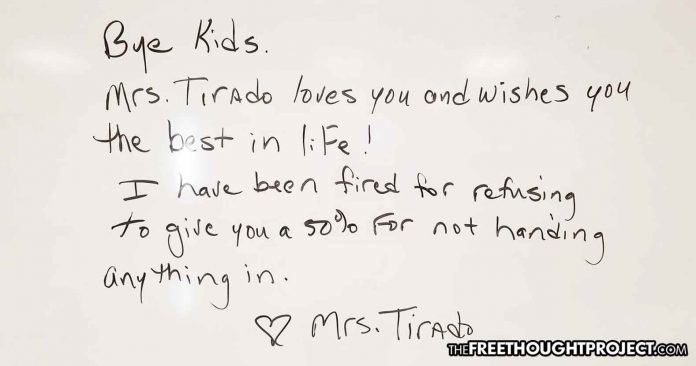 Bye Kids.
Mrs. Tirado loves you and wishes you
the best in life!
I have been fired for refusing
to give you a 50% for not handing
anything in.
♡ Mrs. Tirado
THEFREETHOUGHTPROJECT.COM